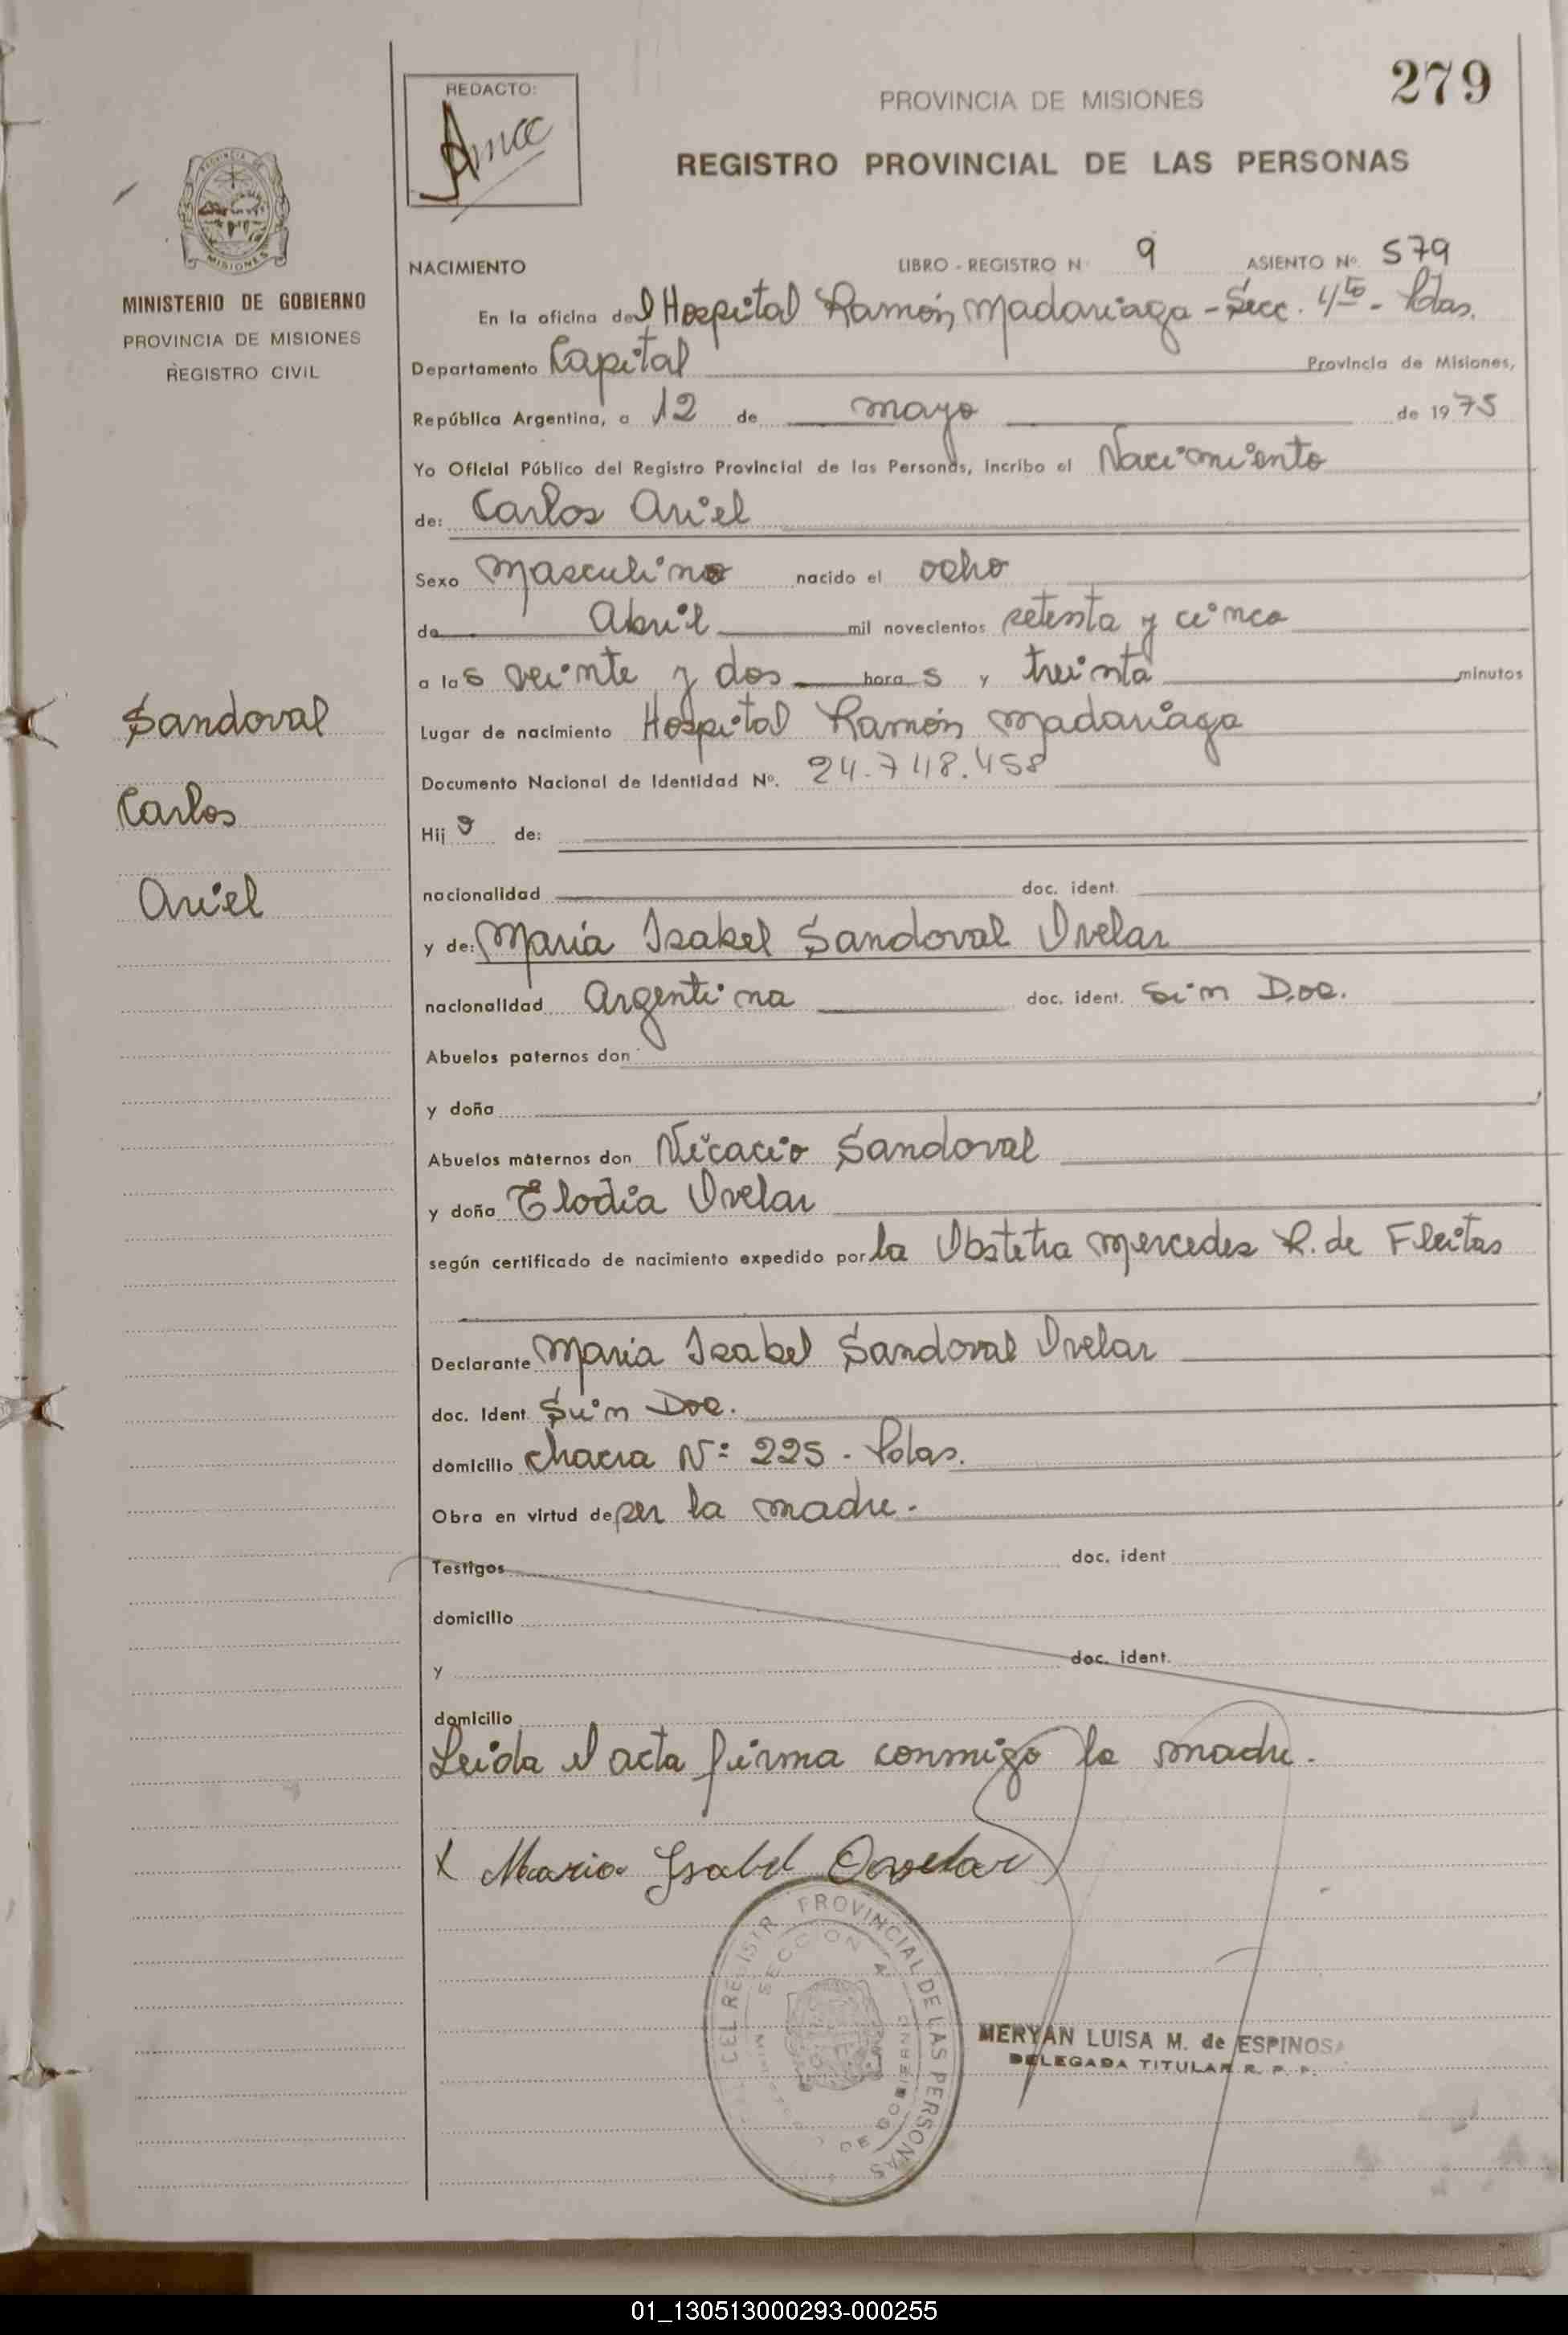 279
REDACTO:
PROVINCIA DE MISIONES
REGISTRO PROVINCIAL DE LAS PERSONAS
PROVINCIA DE
MISIONES
MINISTERIO DE GOBIERNO
PROVINCIA DE MISIONES
REGISTRO CIVIL
Sandoval
Carlos
Ariel
NACIMIENTO LIBRO - REGISTRO N 9 ASIENTO Nº. 579
En la oficina del Hospital Ramón Madariaga - Secc. 4ta - Pdas.
Departamento Capital Provincia de Misiones,
República Argentina, a 12 de mayo de 1975
Yo Oficial Público del Registro Provincial de las Personas, incribo el Nacimiento
de: Carlos Ariel
Sexo Masculino nacido el ocho
de Abril mil novecientos setenta y cinco
a las veinte y dos horas y treinta minutos
Lugar de nacimiento Hospital Ramón Madariaga
Documento Nacional de Identidad Nº. 24.748.458
Hijo de:
nacionalidad doc. ident.
y de: María Isabel Sandoval Ovelar
nacionalidad Argentina doc. ident. Sin Doc.
Abuelos paternos don
y doña
Abuelos maternos don Nicacio Sandoval
y doña Elodia Ovelar
según certificado de nacimiento expedido por la Obstetra Mercedes R. de Fleitas
Declarante María Isabel Sandoval Ovelar
doc. Ident. Sin Doc.
domicilio chacra Nº 225 - Pdas.
Obra en virtud de ser la madre.
Testigos doc. ident
domicilio
y doc. ident.
domicilio
Leida el acta firma conmigo la madre.
X Maria Isabel Ovelar
PROVINCIAL DE LAS PERSONAS
SECCION 4
MERYAN LUISA M. de ESPINOSA
DELEGADA TITULAR R. P. P.
01_130513000293-000255